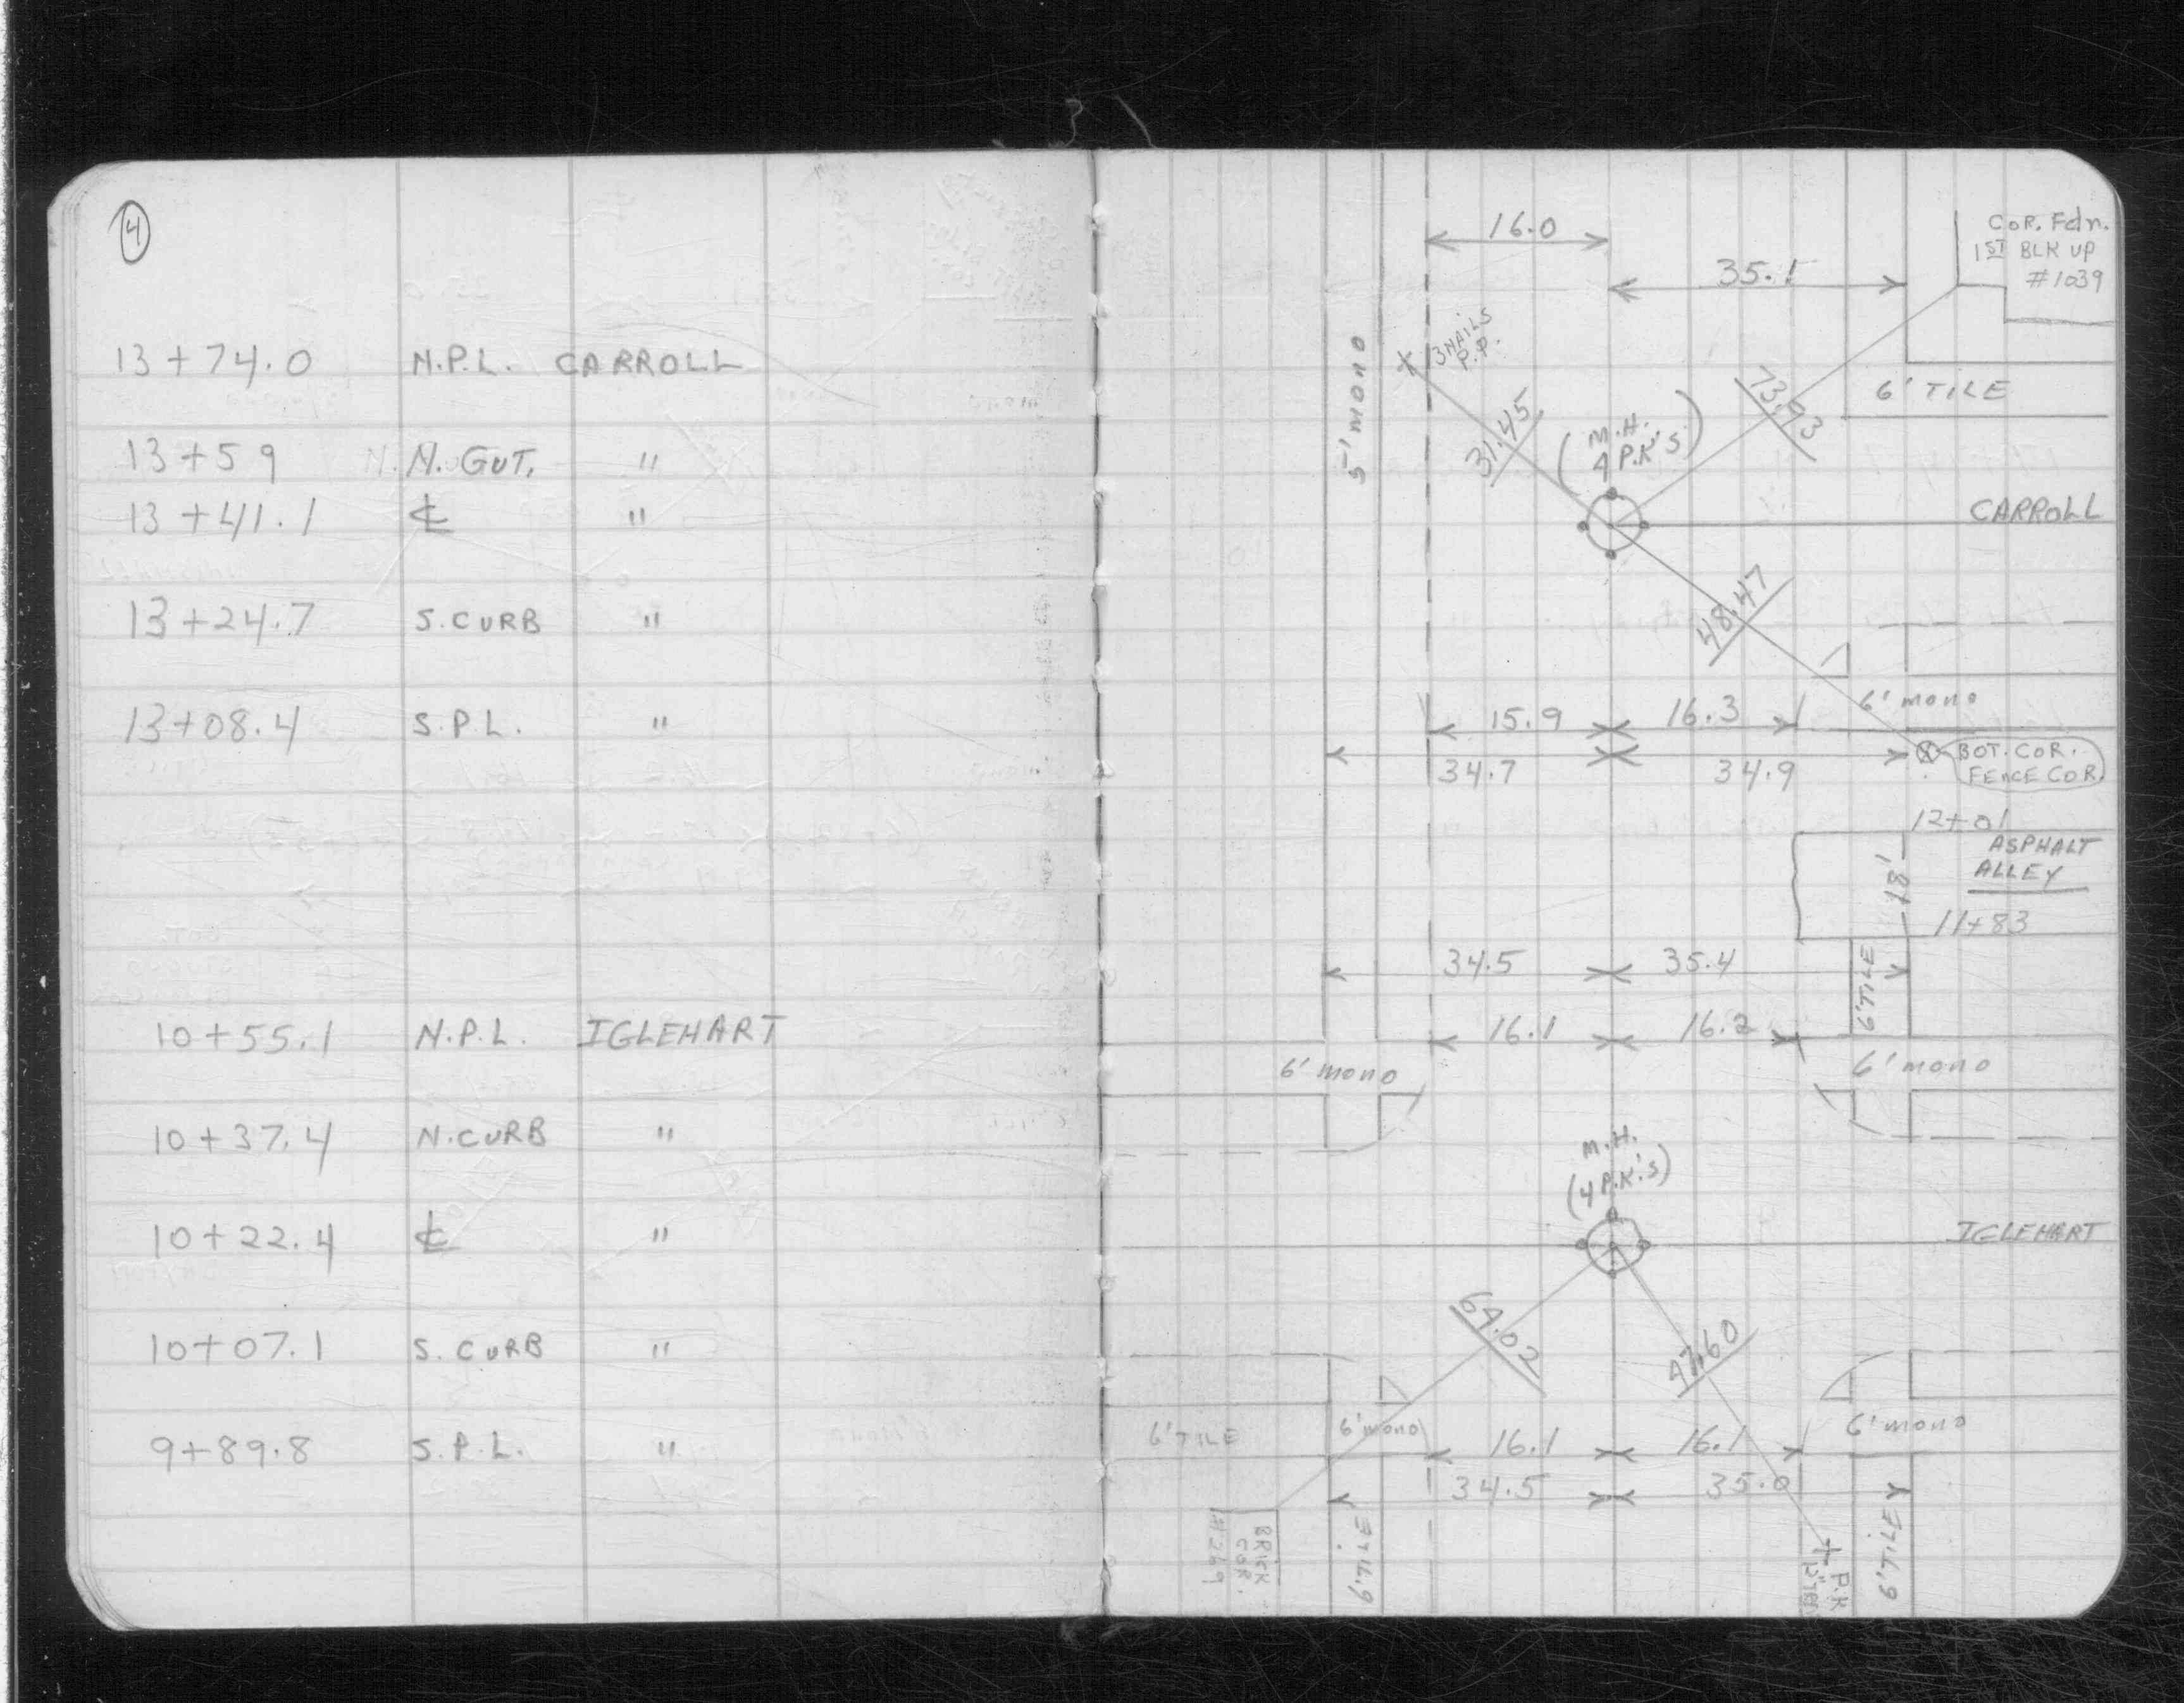 4
13+74.0 N.P.L. CARROLL
13+59 N. GUT. "
13+41.1 ℄ "
13+24.7 S. CURB "
13+08.4 S.P.L. "
10+55.1 N.P.L. IGLEHART
10+37.4 N. CURB "
10+22.4 ℄ "
10+07.1 S. CURB "
9+89.8 S.P.L. "
16.0
COR. Fdn.
1ST BLK UP
#1039
35.1
3 NAILS
P.P.
5' MONO
6' TILE
73.93
31.45
(M.H.
4 P.K'S)
CARROLL
48.47
6' mono
15.9 16.3
34.7 34.9
BOT. COR.
FENCE COR.
12+01
ASPHALT
ALLEY
18'
11+83
34.5 35.4
6' TILE
16.1 16.2
6' mono
6' mono
M.H.
(4 P.K.'S)
IGLEHART
64.02
47.60
6' TILE
6' mono
16.1 16.1
6' mono
34.5 35.0
BRICK
COR.
#269
6' TILE
P.K
12"
6' TILE